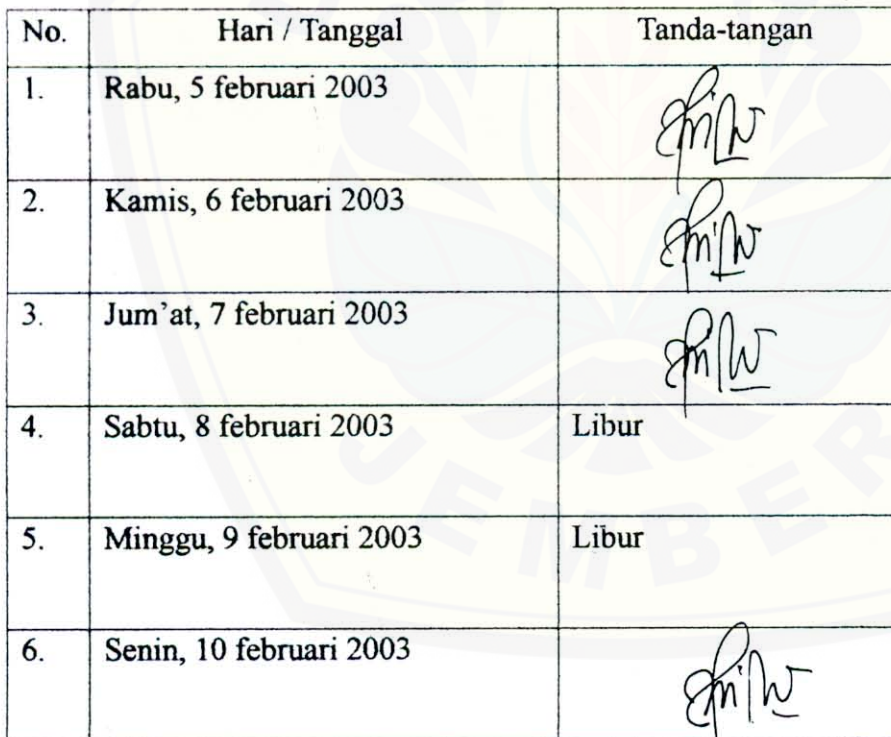 No. Hari / Tanggal Tanda-tangan
1. Rabu, 5 februari 2003
2. Kamis, 6 februari 2003
3. Jum'at, 7 februari 2003
4. Sabtu, 8 februari 2003 Libur
5. Minggu, 9 februari 2003 Libur
6. Senin, 10 februari 2003
JEMBER